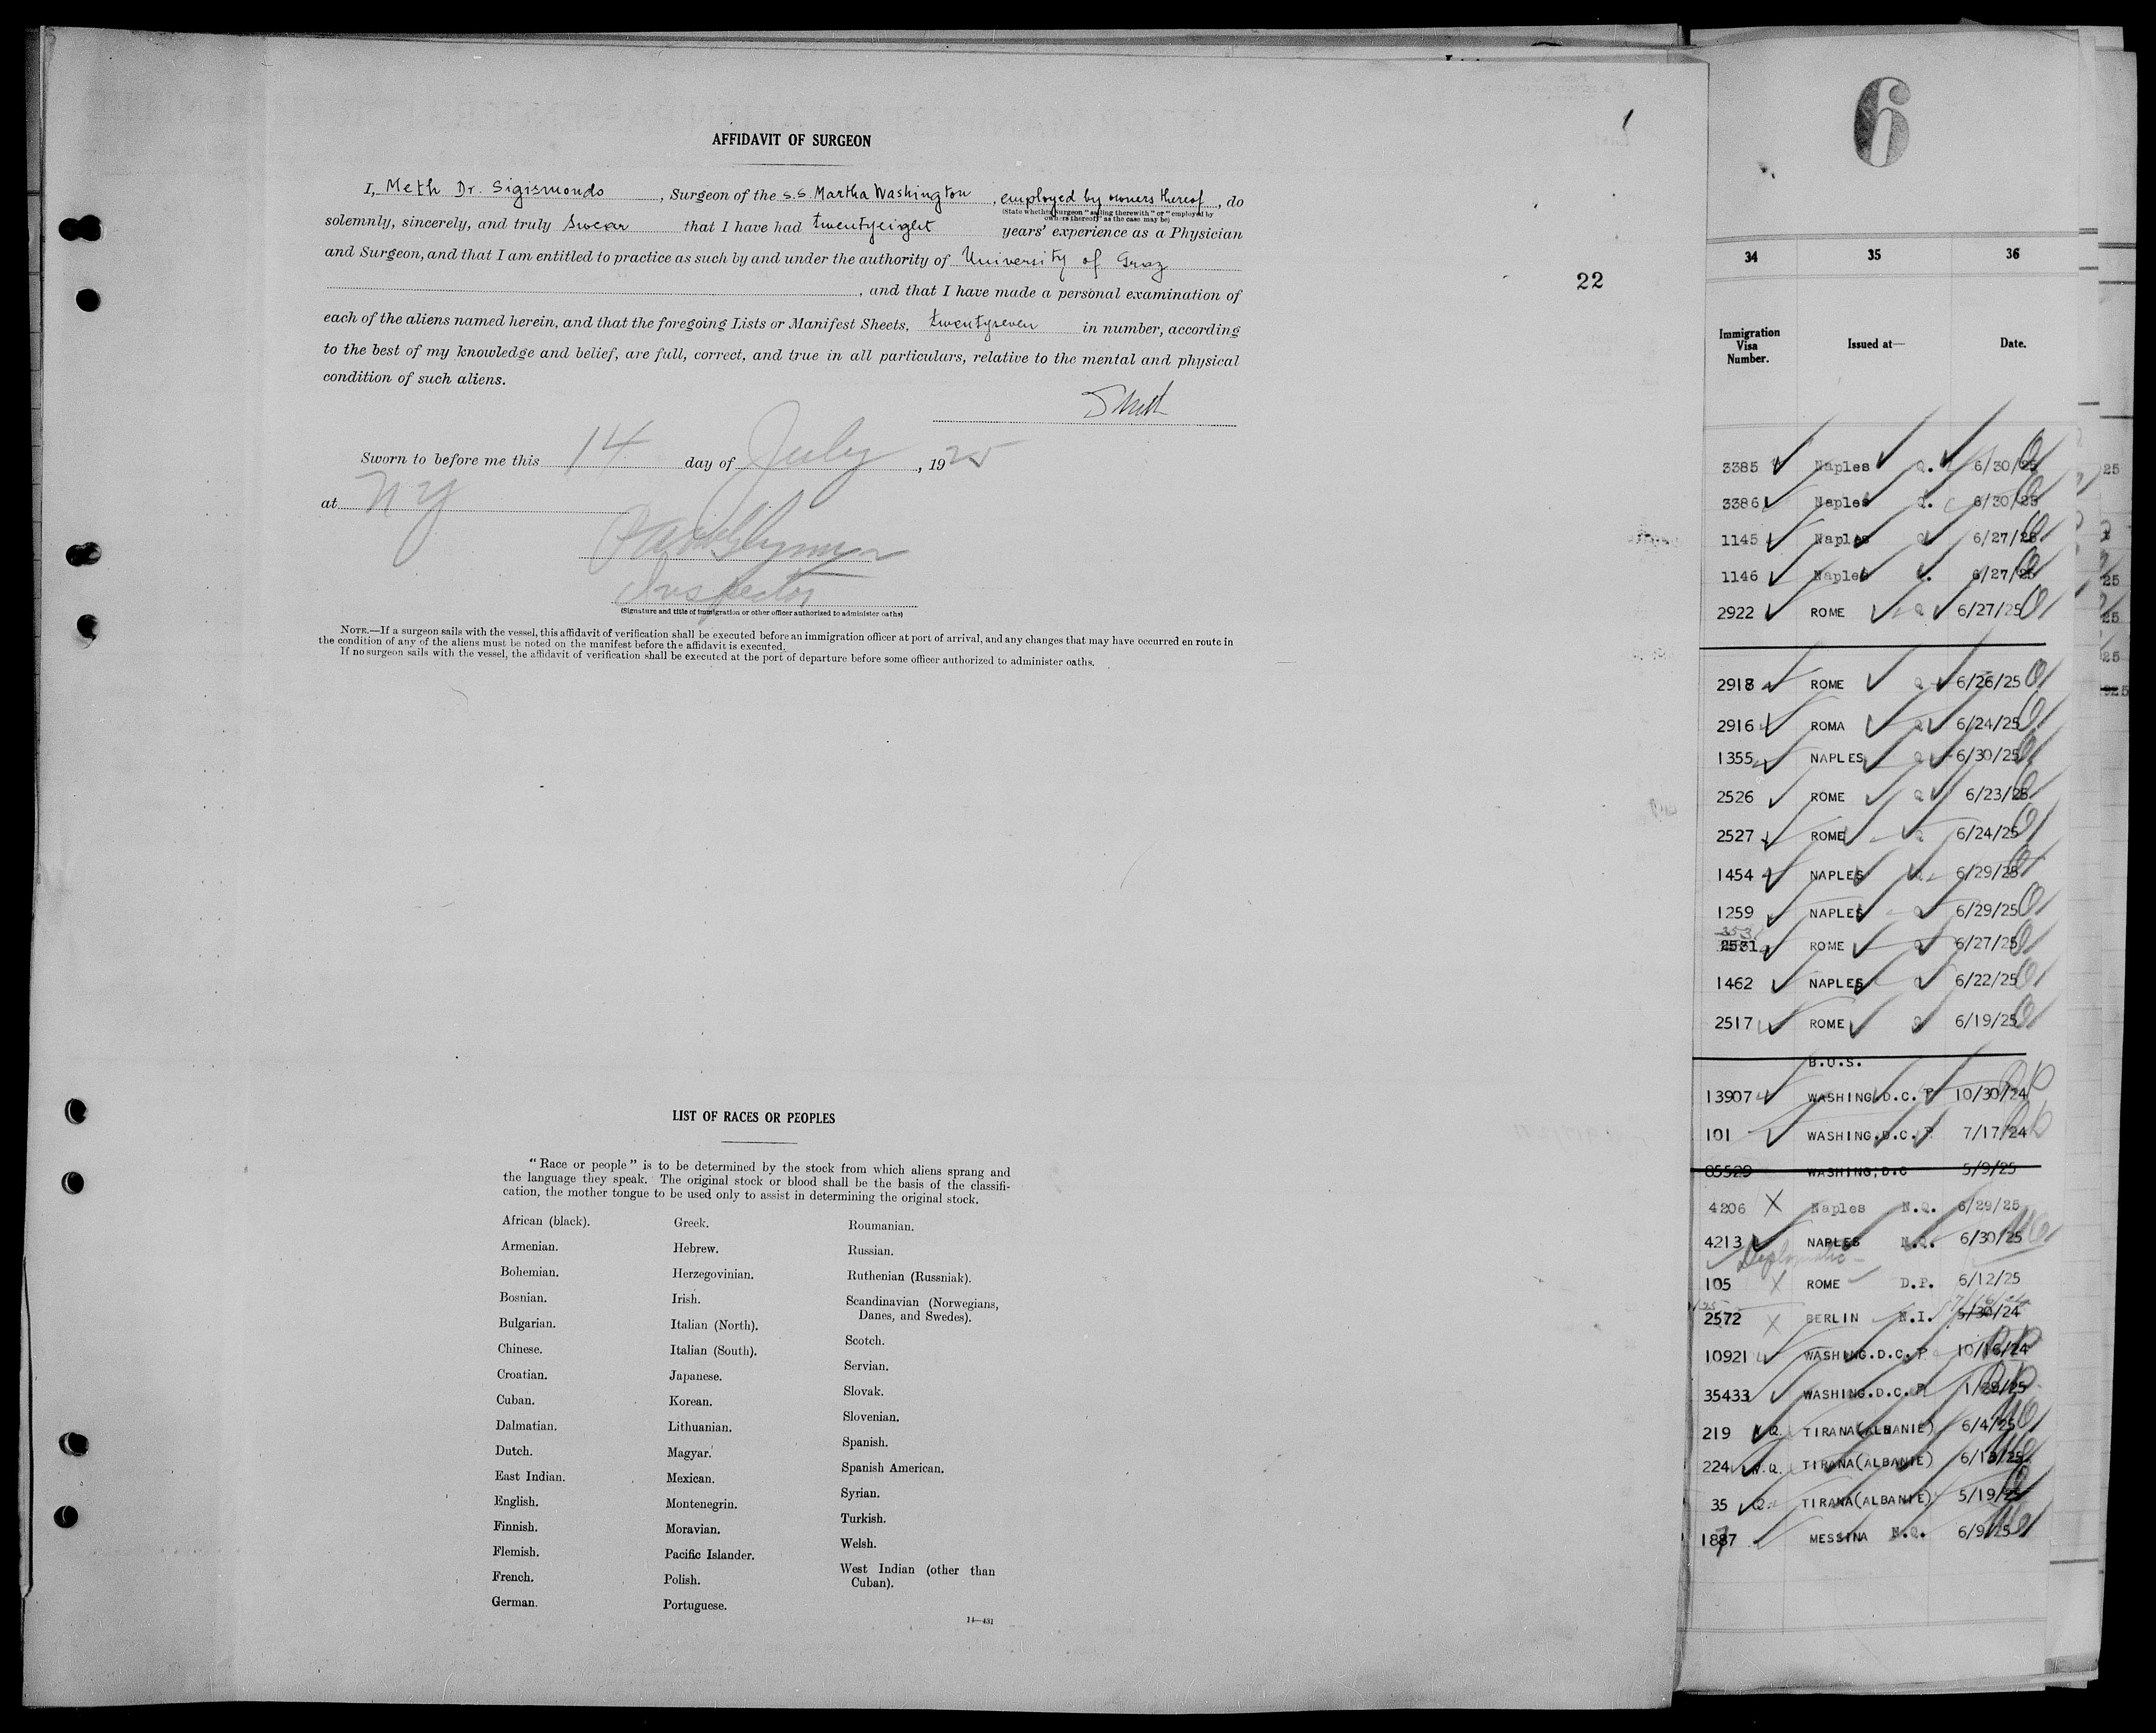 1
AFFIDAVIT OF SURGEON
I, Meth Dr. Sigismondo, Surgeon of the S.S. Martha Washington, employed by owners thereof, do
(State whether surgeon "sailing therewith" or "employed by
owners thereof," as the case may be)
solemnly, sincerely, and truly swear that I have had twentyeight years' experience as a Physician
and Surgeon, and that I am entitled to practice as such by and under the authority of University of Graz
, and that I have made a personal examination of
each of the aliens named herein, and that the foregoing Lists or Manifest Sheets, twentyseven in number, according
to the best of my knowledge and belief, are full, correct, and true in all particulars, relative to the mental and physical
condition of such aliens.
Sworn to before me this 14 day of July, 1925
at NY
Inspector
(Signature and title of immigration or other officer authorized to administer oaths)
NOTE.—If a surgeon sails with the vessel, this affidavit of verification shall be executed before an immigration officer at port of arrival, and any changes that may have occurred en route in
the condition of any of the aliens must be noted on the manifest before the affidavit is executed.
If no surgeon sails with the vessel, the affidavit of verification shall be executed at the port of departure before some officer authorized to administer oaths.
22
LIST OF RACES OR PEOPLES
"Race or people" is to be determined by the stock from which aliens sprang and
the language they speak. The original stock or blood shall be the basis of the classifi-
cation, the mother tongue to be used only to assist in determining the original stock.
African (black).
Armenian.
Bohemian.
Bosnian.
Bulgarian.
Chinese.
Croatian.
Cuban.
Dalmatian.
Dutch.
East Indian.
English.
Finnish.
Flemish.
French.
German.
Greek.
Hebrew.
Herzegovinian.
Irish.
Italian (North).
Italian (South).
Japanese.
Korean.
Lithuanian.
Magyar.
Mexican.
Montenegrin.
Moravian.
Pacific Islander.
Polish.
Portuguese.
Roumanian.
Russian.
Ruthenian (Russniak).
Scandinavian (Norwegians,
Danes, and Swedes).
Scotch.
Servian.
Slovak.
Slovenian.
Spanish.
Spanish American.
Syrian.
Turkish.
Welsh.
West Indian (other than
Cuban).
14—431
6
34 35 36
Immigration
Visa
Number.
Issued at—
Date.
3385 Naples Q. 6/30/25
3386 Naples Q. 6/30/25
1145 Naples Q 6/27/25
1146 Naples Q. 6/27/25
2922 ROME Q 6/27/25
2918 ROME Q 6/26/25
2916 ROMA Q 6/24/25
1355 NAPLES Q 6/30/25
2526 ROME Q 6/23/25
2527 ROME Q 6/24/25
1454 NAPLES Q 6/29/25
1259 NAPLES Q 6/29/25
2531 ROME Q 6/27/25
1462 NAPLES Q 6/22/25
2517 ROME Q 6/19/25
B.O.S.
13907 WASHING.D.C. P 10/30/24
101 WASHING.D.C. P 7/17/24
85529 WASHING,D.C 5/9/25
4206 Naples N.Q. 6/29/25
4213 NAPLES N.Q. 6/30/25
Diplomatic
105 ROME D.P. 6/12/25
2572 BERLIN N.I. 5/30/24
10921 WASHING.D.C. P 10/16/24
35433 WASHING.D.C. P 1/29/25
219 Q. TIRANA(ALBANIE) 6/4/25
224 N.Q. TIRANA(ALBANIE) 6/13/25
35 Q. TIRANA(ALBANIE) 5/19/25
1887 MESSINA N.Q. 6/9/25